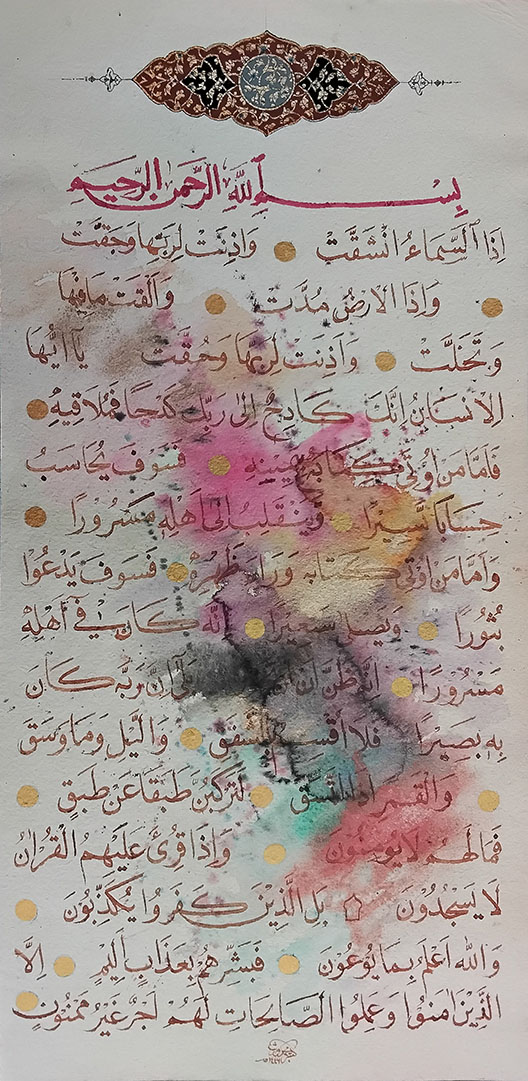 بِسْمِ ٱللّٰهِ الرَّحْمٰنِ الرَّحِيمِ
اِذَا السَّمَاءُ انْشَقَّتْ وَاَذِنَتْ لِرَبِّهَا وَحُقَّتْ
وَاِذَا الْاَرْضُ مُدَّتْ وَاَلْقَتْ مَا فِيهَا
وَتَخَلَّتْ وَاَذِنَتْ لِرَبِّهَا وَحُقَّتْ يَآ اَيُّهَا
الْاِنْسَانُ اِنَّكَ كَادِحٌ اِلٰى رَبِّكَ كَدْحًا فَمُلَاقِيهِ
فَاَمَّا مَنْ اُوتِيَ كِتَابَهُ بِيَمِينِهِ فَسَوْفَ يُحَاسَبُ
حِسَابًا يَسِيرًا وَيَنْقَلِبُ اِلٰى اَهْلِهِ مَسْرُورًا
وَاَمَّا مَنْ اُوتِيَ كِتَابَهُ وَرَاءَ ظَهْرِهِ فَسَوْفَ يَدْعُوا
ثُبُورًا وَيَصْلٰى سَعِيرًا اِنَّهُ كَانَ فِي اَهْلِهِ
مَسْرُورًا اِنَّهُ ظَنَّ اَنْ بَلٰى اِنَّ رَبَّهُ كَانَ
بِهِ بَصِيرًا فَلَا اُقْسِمُ بِالشَّفَقِ وَالَّيْلِ وَمَا وَسَقَ
وَالْقَمَرِ اِذَا اتَّسَقَ لَتَرْكَبُنَّ طَبَقًا عَنْ طَبَقٍ
فَمَا لَهُمْ لَا يُؤْمِنُونَ وَاِذَا قُرِئَ عَلَيْهِمُ الْقُرْاٰنُ
لَا يَسْجُدُونَ بَلِ الَّذِينَ كَفَرُوا يُكَذِّبُونَ
وَاللّٰهُ اَعْلَمُ بِمَا يُوعُونَ فَبَشِّرْهُمْ بِعَذَابٍ اَلِيمٍ اِلَّا
الَّذِينَ اٰمَنُوا وَعَمِلُوا الصَّالِحَاتِ لَهُمْ اَجْرٌ غَيْرُ مَمْنُونٍ